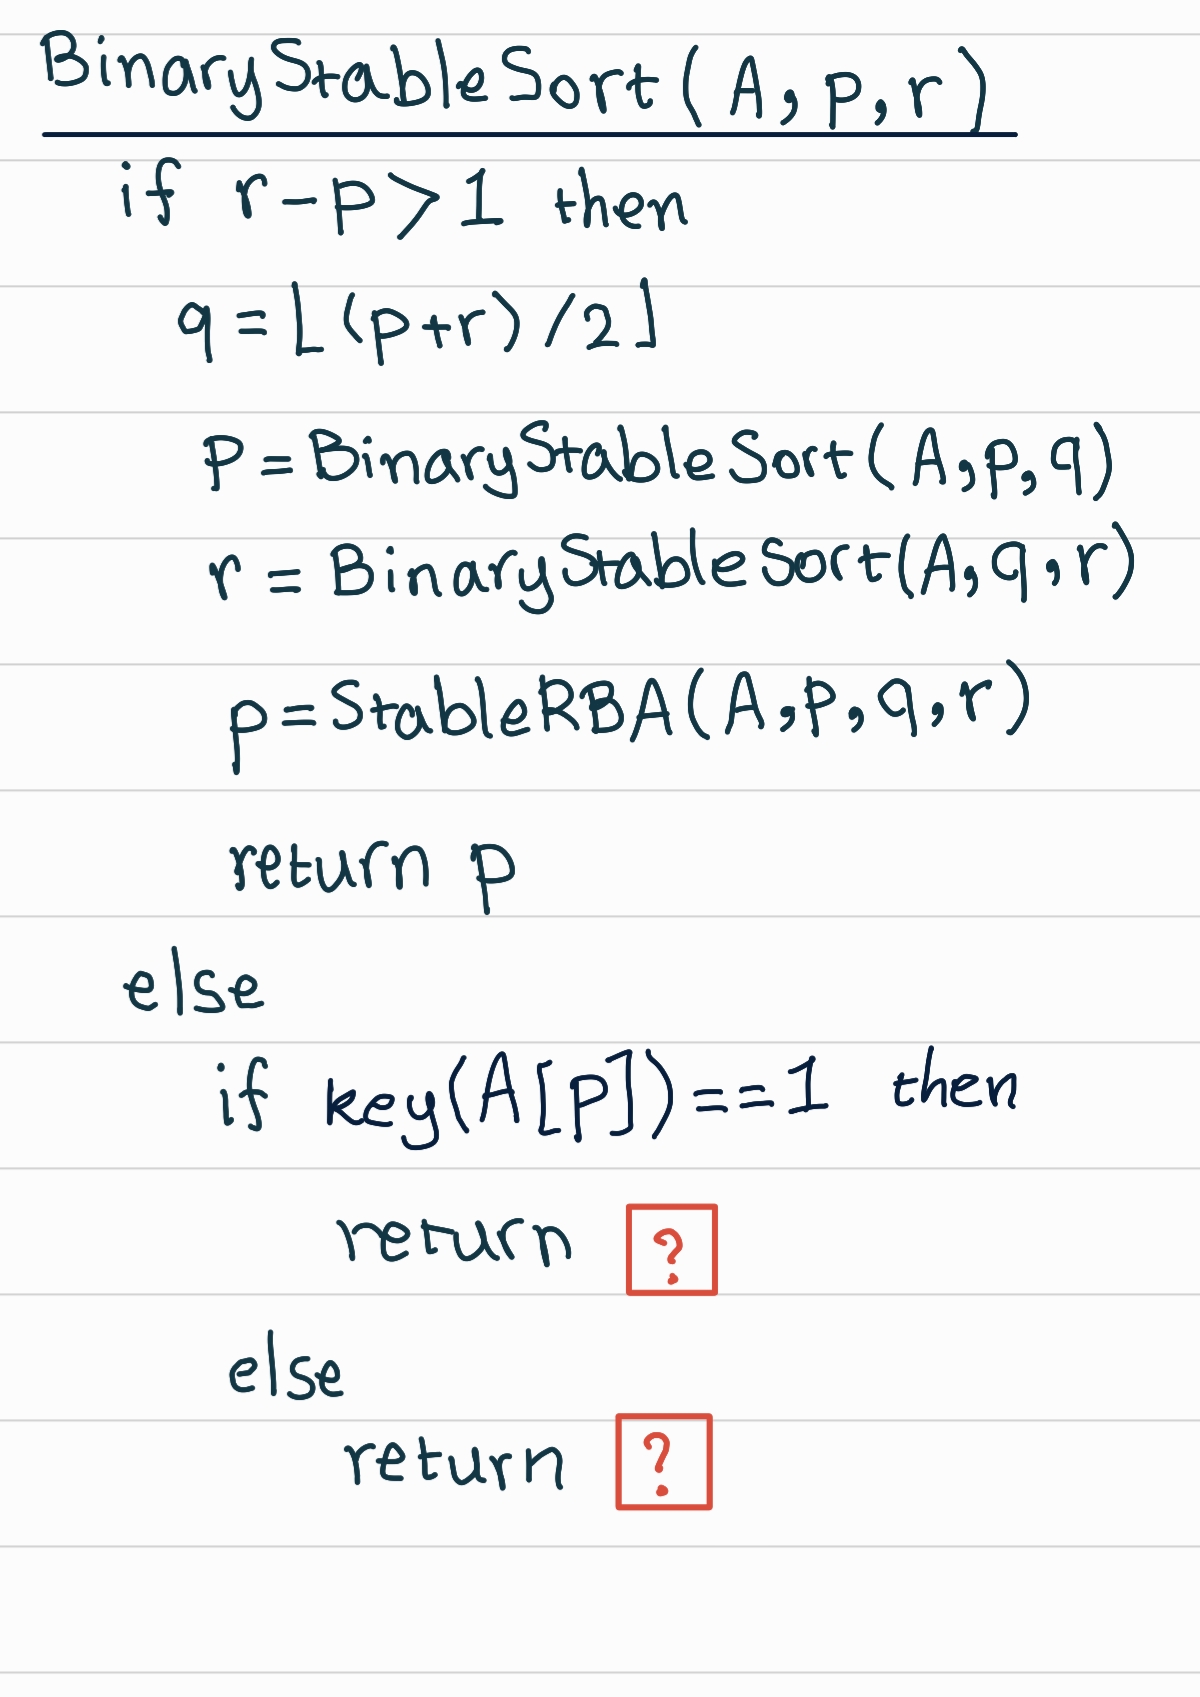 BinaryStableSort(A,p,r)
if r-p>1 then
q=⌊(p+r)/2⌋
p=BinaryStableSort(A,p,q)
r=BinaryStableSort(A,q,r)
p=StableRBA(A,p,q,r)
return p
else
if key(A[p])==1 then
return ?
else
return ?